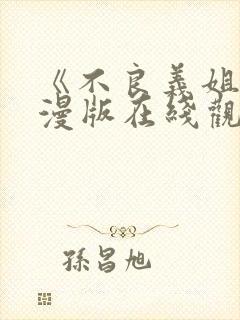 《不良義姐
漫版在綫觀
孫昌旭